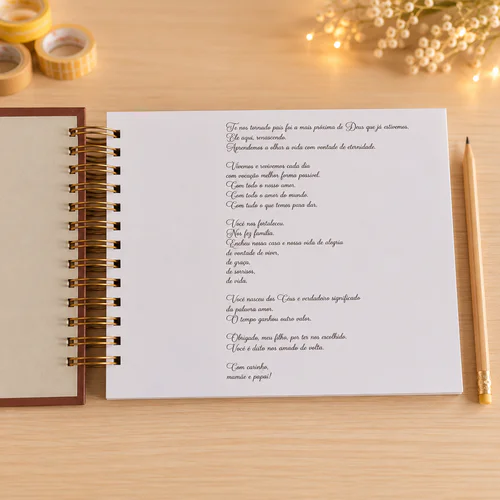 Te nos tornado pais foi o mais próximo de Deus que já estivemos.
Ele aqui, renascendo.
Aprendemos a olhar a vida com vontade de eternidade.
Vivemos e revivemos cada dia
com vocação melhor forma possível.
Com todo o nosso amor.
Com todo o amor do mundo.
Com tudo o que temos para dar.
Você nos fortaleceu.
Nos fez família.
Encheu nossa casa e nossa vida de alegria
de vontade de viver,
de graça,
de sorrisos,
de vida.
Você nasceu dos Céus é verdadeiro significado
da palavra amor.
O tempo ganhou outro valor.
Obrigado, meu filho, por ter nos escolhido.
Você é dito nos amado de volta.
Com carinho,
mamãe e papai!